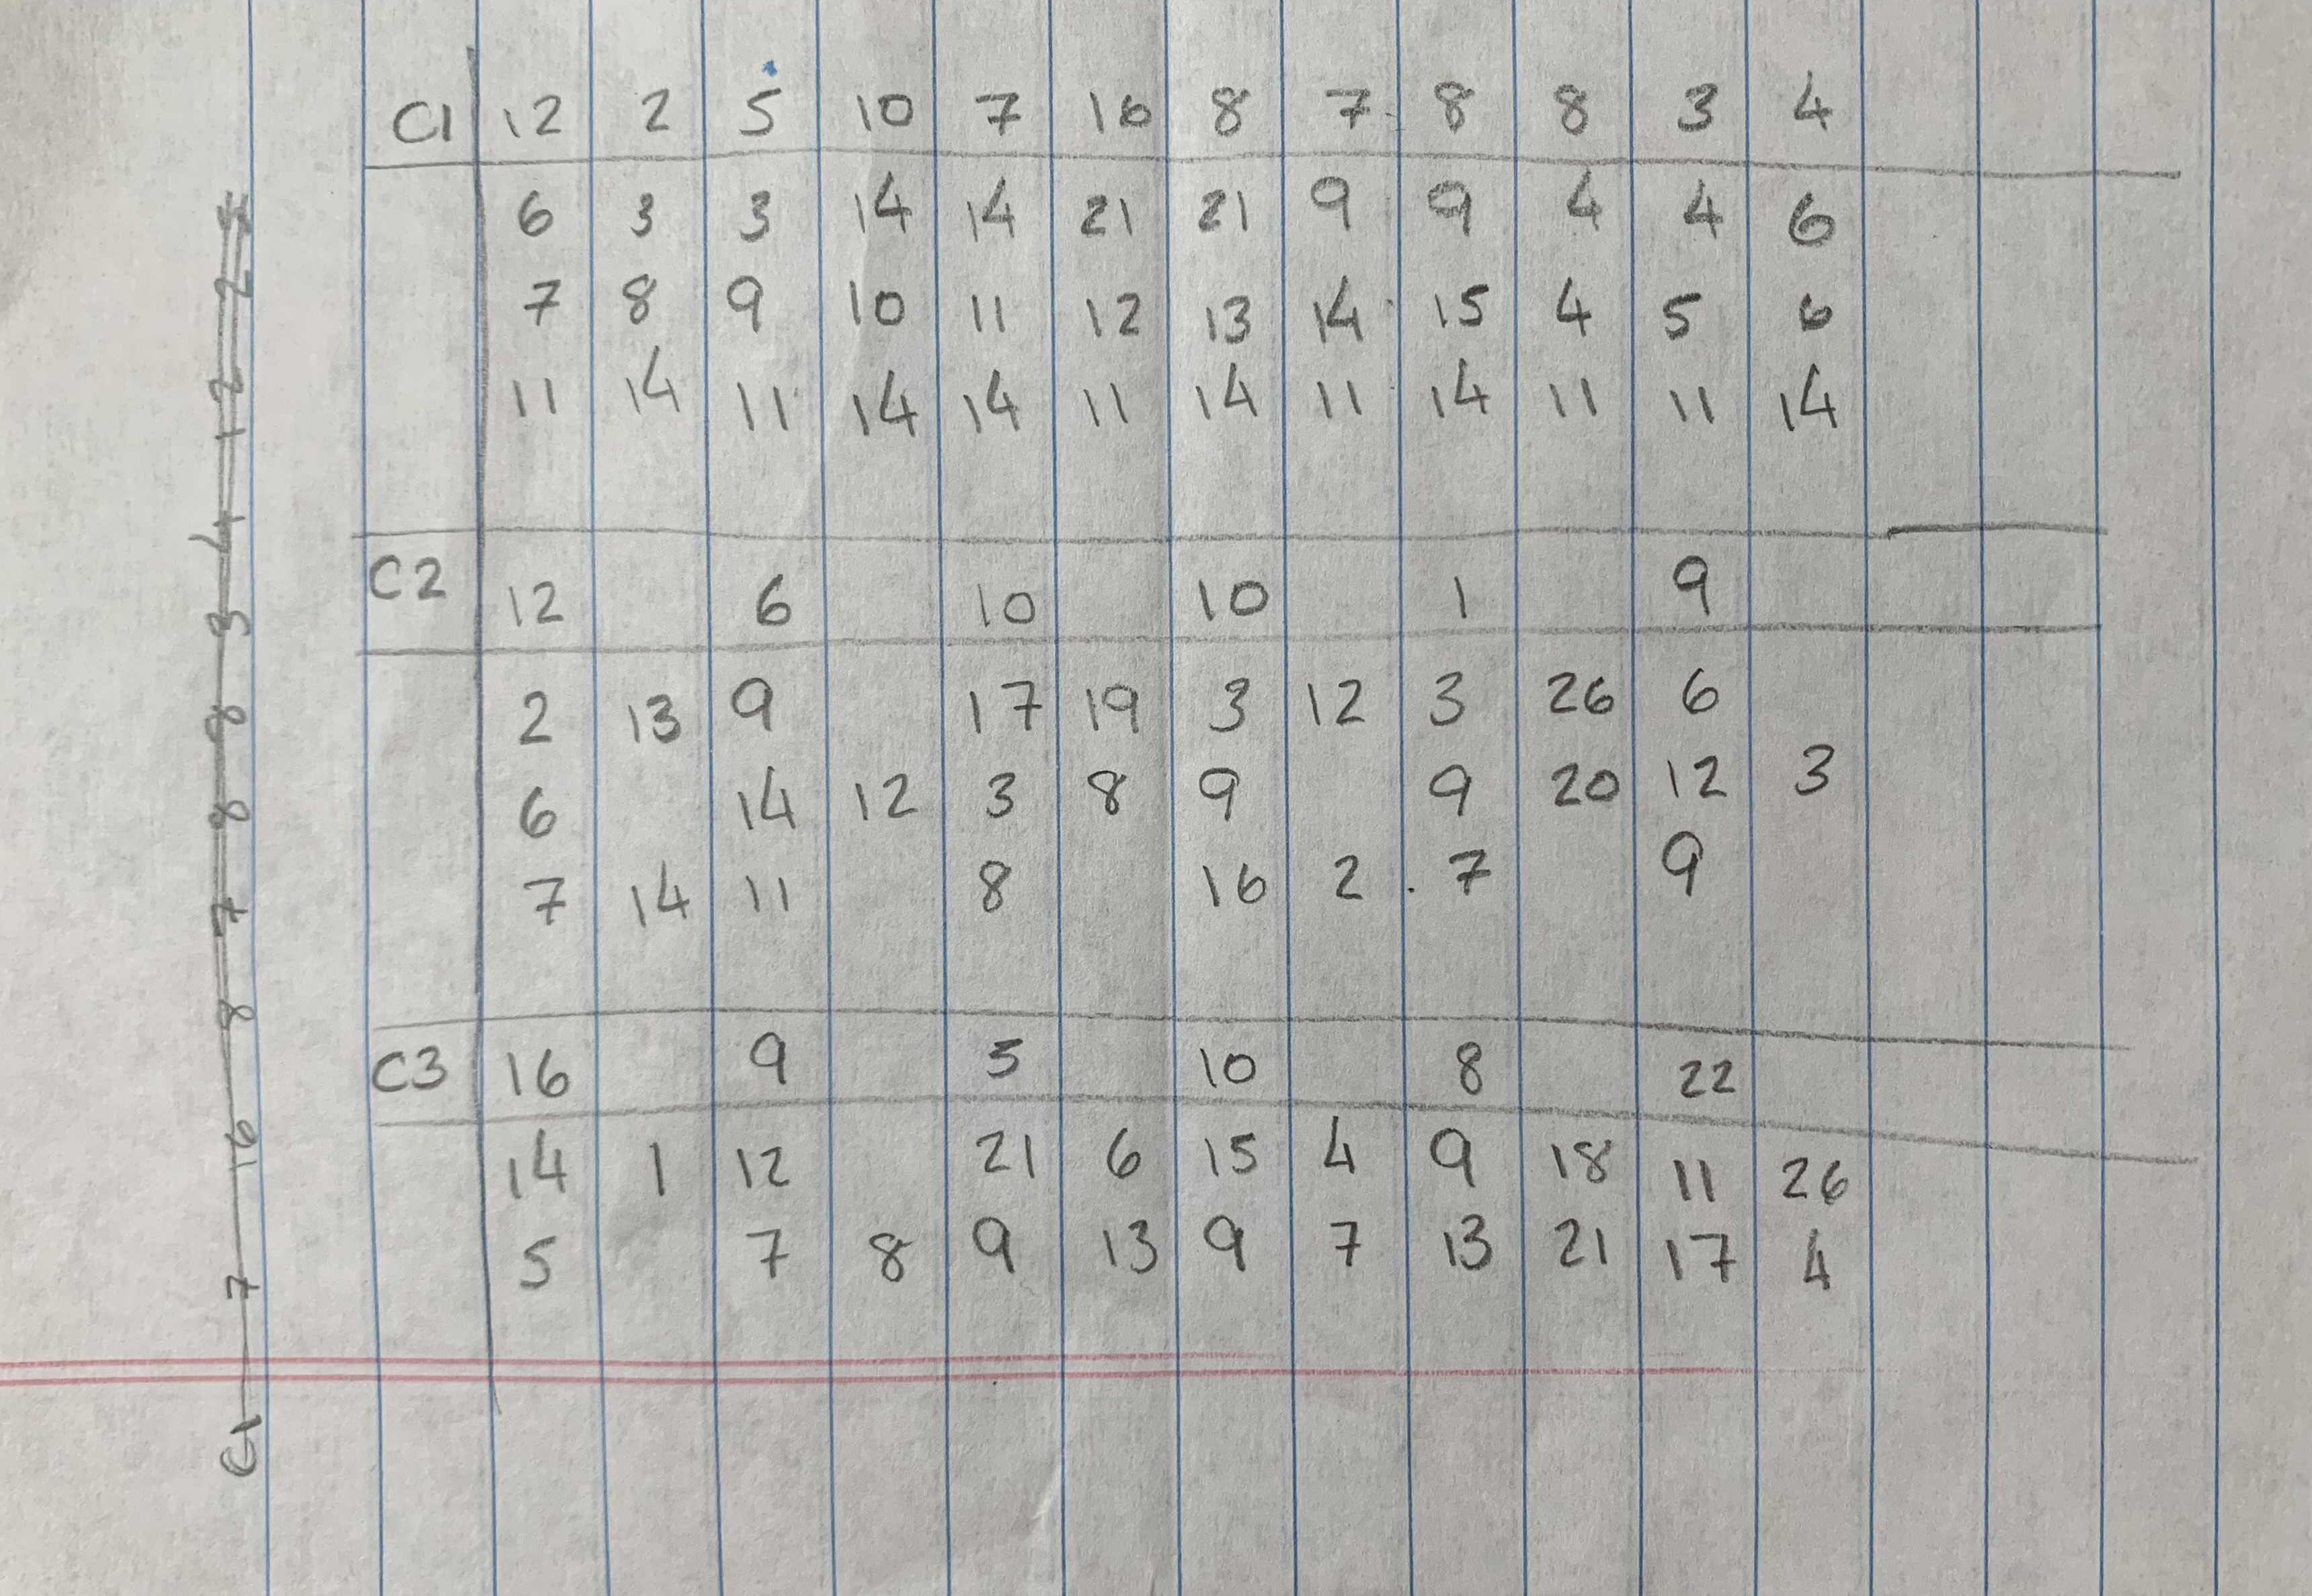 C1 12 2 5 10 7 16 8 7 8 8 3 4
6 3 3 14 14 21 21 9 9 4 4 6
7 8 9 10 11 12 13 14 15 4 5 6
11 14 11 14 14 11 14 11 14 11 11 14
C2 12 6 10 10 1 9
2 13 9 17 19 3 12 3 26 6
6 14 12 3 8 9 9 20 12 3
7 14 11 8 16 2 7 9
C3 16 9 5 10 8 22
14 1 12 21 6 15 4 9 18 11 26
5 7 8 9 13 9 7 13 21 17 4
C1 7 16 8 7 8 8 3 4 12 2